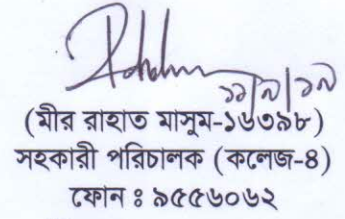 ১১/৯/১৯
(মীর রাহাত মাসুম-১৬৩৯৮)
সহকারী পরিচালক (কলেজ-৪)
ফোন : ৯৫৫৬০৬২